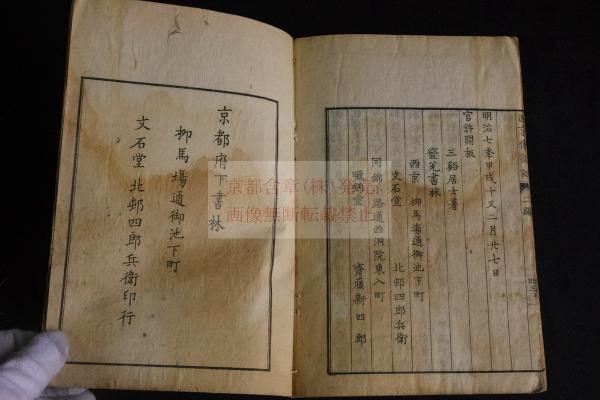 明治七季甲戌十又二月廿七日
官許開板
三谿居士著
發兌書林
西京 柳馬塲通御池下町
文石堂 北邨四郎兵衛
同錦小路通西洞院東入町
暢錦堂 齋藤新四郎
京都府下書林
柳馬塲通御池下町
文石堂 北邨四郎兵衛印行
京都合章(株)発売
画像無断転載禁止